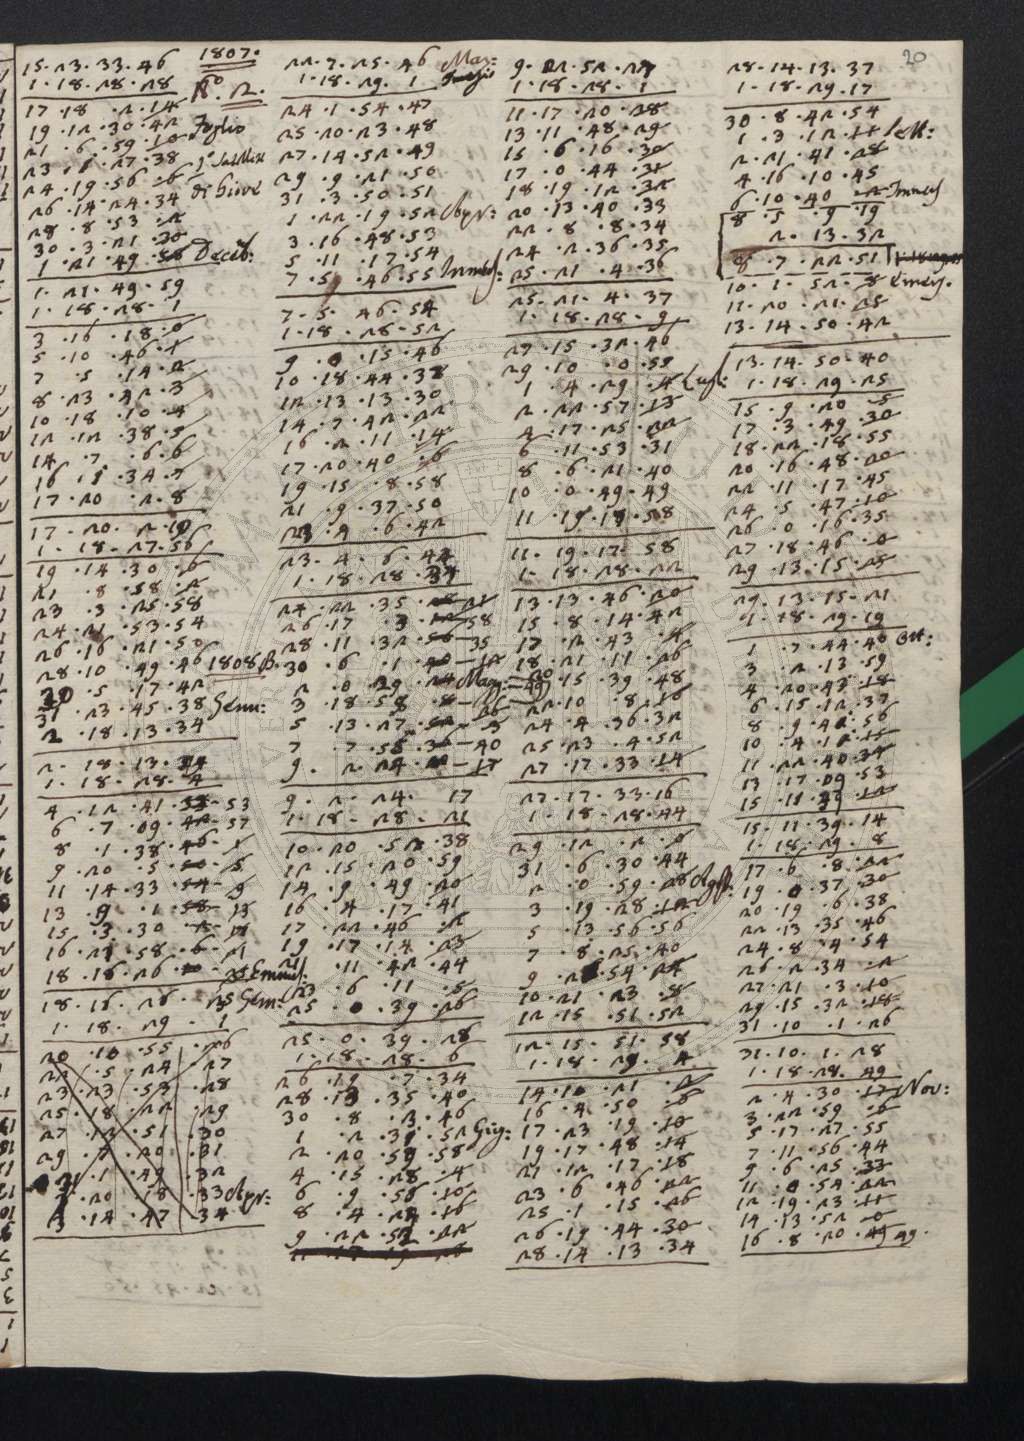 15.23.33.46 1807.
1.18.28.28 No. 2.
17.18.2.14
19.12.30.42 Foglio
21.6.59.10
23.1.27.38
24.19.56.6 di Giove
26.14.24.34
28.8.53.2
30.3.21.30
1.21.49.58 Deceb:
1.21.49.59
1.18.28.1
3.16.18.0
5.10.46.1
7.5.14.2
8.23.42.3
10.18.10.4
12.12.38.5
14.7.6.6
16.1.34.7
17.20.2.8
17.20.2.10
1.18.27.56
19.14.30.6
21.8.58.2
23.3.25.58
24.21.53.54
26.16.21.50
28.10.49.46 1808 B.
30.5.17.42
31.23.45.38 Genn:
2.18.13.34
2.18.13.49
1.18.28.4
4.12.41.53
6.7.09.57
8.1.38.1
9.20.5.5
11.14.33.9
13.9.1.13
15.3.30.17
16.21.58.21
18.16.26.25 Emmers:
18.16.26.25 Gen:
1.18.29.1
20.10.55.26
22.5.24.27
23.23.53.28
25.18.22.29
27.12.51.30
29.7.20.31
31.1.49.32
2.20.18.33 Apr:
3.14.47.34
22.7.25.46 Mar:
1.18.29.1
24.1.54.47
25.20.23.48
27.14.52.49
29.9.21.50
31.3.50.51
1.22.19.52 Apr:
3.16.48.53
5.11.17.54
7.5.46.55 Immers:
7.5.46.54
1.18.28.52
9.0.15.46
10.18.44.38
12.13.13.30
14.7.42.22
16.2.11.14
17.20.40.6
19.15.8.58
21.9.37.50
23.4.6.42
23.4.6.42
1.18.28.39
24.22.35.21
26.17.3.58
28.11.32.35
30.6.1.12
2.0.29.49 Magg:
3.18.58.26
5.13.27.3
7.7.55.40
9.2.24.17
9.2.24.17
1.18.28.21
10.20.52.38
12.15.20.59
14.9.49.20
16.4.17.41
17.22.46.2
19.17.14.23
21.11.42.44
23.6.11.5
25.0.39.26
25.0.39.28
1.18.28.6
26.19.7.34
28.13.35.40
30.8.3.46
1.2.31.52 Giug:
2.20.59.58
4.15.28.4
6.9.56.10
8.4.24.16
9.22.52.22
9.22.52.27
1.18.28.1
11.17.20.28
13.11.48.29
15.6.16.30
17.0.44.31
18.19.12.32
20.13.40.33
22.8.8.34
24.2.36.35
25.21.4.36
25.21.4.37
1.18.28.9
27.15.32.46
29.10.0.55
1.4.29.4 Lugl:
2.22.57.13
4.17.25.22
6.11.53.31
8.6.21.40
10.0.49.49
11.19.18.58
11.19.17.58
1.18.28.22
13.13.46.20
15.8.14.42
17.2.43.4
18.21.11.26
20.15.39.48
22.10.8.10
24.4.36.32
25.23.4.52
27.17.33.14
27.17.33.16
1.18.28.44
29.12.2.0
31.6.30.44
2.0.59.28 Agst:
3.19.28.12
5.13.56.56
7.8.25.40
9.2.54.24
10.21.23.8
12.15.51.52
12.15.51.58
1.18.29.4
14.10.21.2
16.4.50.6
17.23.19.10
19.17.48.14
21.12.17.18
23.6.46.22
25.1.15.26
26.19.44.30
28.14.13.34
20
28.14.13.37
1.18.29.17
30.8.42.54
1.3.12.11 Sett:
2.21.41.28
4.16.10.45
6.10.40.2 Immers
8.5.9.19
2.13.32
8.7.22.51
10.1.52.8 Emers.
11.20.21.25
13.14.50.42
13.14.50.40
1.18.29.25
15.9.20.5
17.3.49.30
18.22.18.55
20.16.48.20
22.11.17.45
24.5.47.10
26.0.16.35
27.18.46.0
29.13.15.25
29.13.15.21
1.18.29.19
1.7.44.40 Ott:
3.2.13.59
4.20.43.18
6.15.12.37
8.9.41.56
10.4.11.15
11.22.40.34
13.17.09.53
15.11.39.12
15.11.39.14
1.18.29.8
17.6.8.22
19.0.37.30
20.19.6.38
22.13.35.46
24.8.4.54
26.2.34.2
27.21.3.10
29.15.32.18
31.10.1.26
31.10.1.28
1.18.28.49
2.4.30.17 Nov:
3.22.59.6
5.17.27.55
7.11.56.44
9.6.25.33
11.0.54.22
12.19.23.11
14.13.52.0
16.8.20.49 49.